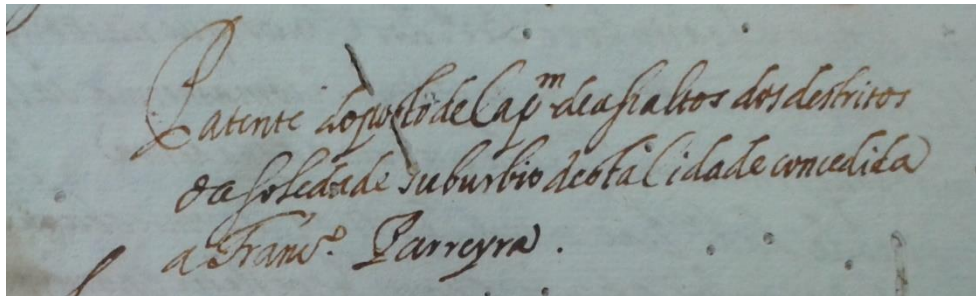 Patente do posto de Capm de asaltos dos destritos
da soledade suburbio desta Cidade concedida
a Franco. Parreyra.